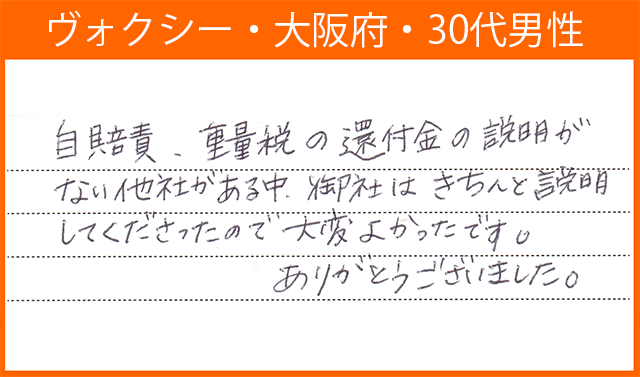 ヴォクシー・大阪府・30代男性
自賠責、重量税の還付金の説明が
ない他社がある中、御社はきちんと説明
してくださったので大変よかったです。
ありがとうございました。